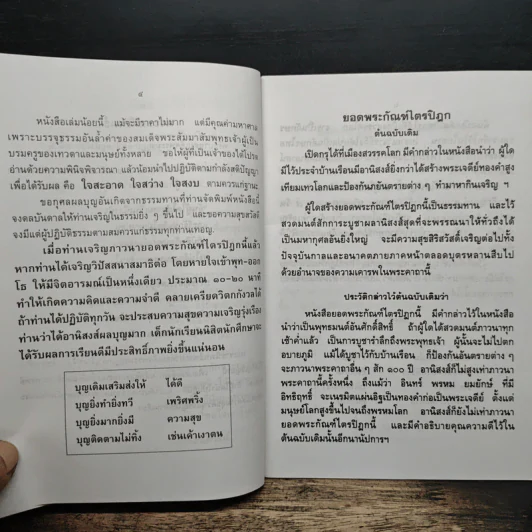 ๔
หนังสือเล่มน้อยนี้ แม้จะมีราคาไม่มาก แต่มีคุณค่ามหาศาล
เพราะบรรจุธรรมอันล้ำค่าของสมเด็จพระสัมมาสัมพุทธเจ้าผู้เป็น
บรมครูของเทวดาและมนุษย์ทั้งหลาย ขอให้ผู้ที่เป็นเจ้าของได้โปรด
อ่านด้วยความพินิจพิจารณา แล้วน้อมนำไปปฏิบัติตามกำลังสติปัญญา
เพื่อได้รับผล คือ ใจสะอาด ใจสว่าง ใจสงบ ตามควรแก่ฐานะ
ขอกุศลผลบุญอันเกิดจากธรรมทานที่ท่านจัดพิมพ์หนังสือนี้
จงดลบันดาลให้ท่านเจริญในธรรมยิ่ง ๆ ขึ้นไป และขอความสุขสวัสดิ์
จงมีแด่ผู้ปฏิบัติธรรมตามสมควรแก่ธรรมทุกท่านเทอญ.
เมื่อท่านเจริญภาวนายอดพระกัณฑ์ไตรปิฎกนี้แล้ว
หากท่านได้เจริญวิปัสสนาสมาธิต่อ โดยหายใจเข้าพุท-ออก
โธ ให้มีจิตอารมณ์เป็นหนึ่งเดียว ประมาณ ๑๐-๒๐ นาที
ทำให้เกิดความคิดและความจำดี คลายเครียดวิตกกังวลได้
ถ้าท่านได้ปฏิบัติทุกวัน จะประสบความสุขความเจริญรุ่งเรือง
ท่านว่าได้อานิสงส์ผลบุญมาก เด็กนักเรียนนิสิตนักศึกษาจะ
ได้รับผลการเรียนดีมีประสิทธิ์ภาพยิ่งขึ้นแน่นอน
บุญเดิมเสริมส่งให้ ได้ดี
บุญยิ่งทำยิ่งทวี เพริศพริ้ง
บุญยิ่งมากยิ่งมี ความสุข
บุญติดตามไม่ทิ้ง เช่นเค้าเงาตน
ยอดพระกัณฑ์ไตรปิฎก
ต้นฉบับเดิม
เปิดกรุได้ที่เมืองสวรรคโลก มีคำกล่าวในหนังสือนำว่า ผู้ใด
มีไว้ประจำบ้านเรือนมีอานิสงส์ยิ่งกว่าได้สร้างพระเจดีย์ทองคำสูง
เทียมเทวโลกและป้องกันภยันตรายต่าง ๆ ทำมาหากินเจริญ ฯ
ผู้ใดสร้างยอดพระกัณฑ์ไตรปิฎกนี้เป็นธรรมทาน และไว้
สวดมนต์สักการะบูชาผลานิสงส์สุดที่จะพรรณนาให้ทั่วถึงได้
เป็นมหากุศลอันยิ่งใหญ่ จะมีความสุขสิริสวัสดิ์เจริญต่อไปทั้ง
ปัจจุบันกาลและอนาคตภายภาคหน้าตลอดบุตรหลานสืบไป
ด้วยอำนาจของความเคารพในพระคาถานี้
ประวัติกล่าวไว้ต้นฉบับเดิมว่า
หนังสือยอดพระกัณฑ์ไตรปิฎกนี้ มีคำกล่าวไว้ในหนังสือ
นำว่าเป็นพุทธมนต์อันศักดิ์สิทธิ์ ถ้าผู้ใดได้สวดมนต์ภาวนาทุก
เช้าค่ำแล้ว เป็นการบูชารำลึกถึงพระพุทธเจ้า ผู้นั้นจะไม่ไปตก
อบายภูมิ แม้ได้บูชาไว้กับบ้านเรือน ก็ป้องกันอันตรายต่าง ๆ
จะภาวนาพระคาถาอื่น ๆ สัก ๑๐๐ ปี อานิสงส์ก็ไม่สูงเท่าภาวนา
พระคาถานี้ครั้งหนึ่ง ถึงแม้ว่า อินทร์ พรหม ยมยักษ์ ที่มี
อิทธิฤทธิ์ จะเนรมิตแผ่นอิฐเป็นทองคำก่อเป็นพระเจดีย์ ตั้งแต่
มนุษย์โลกสูงขึ้นไปจนถึงพรหมโลก อานิสงส์ก็ยังไม่เท่าภาวนา
ยอดพระกัณฑ์ไตรปิฎกนี้ และมีคำอธิบายคุณความดีไว้ใน
ต้นฉบับเดิมนั้นอีกนานัปการฯ